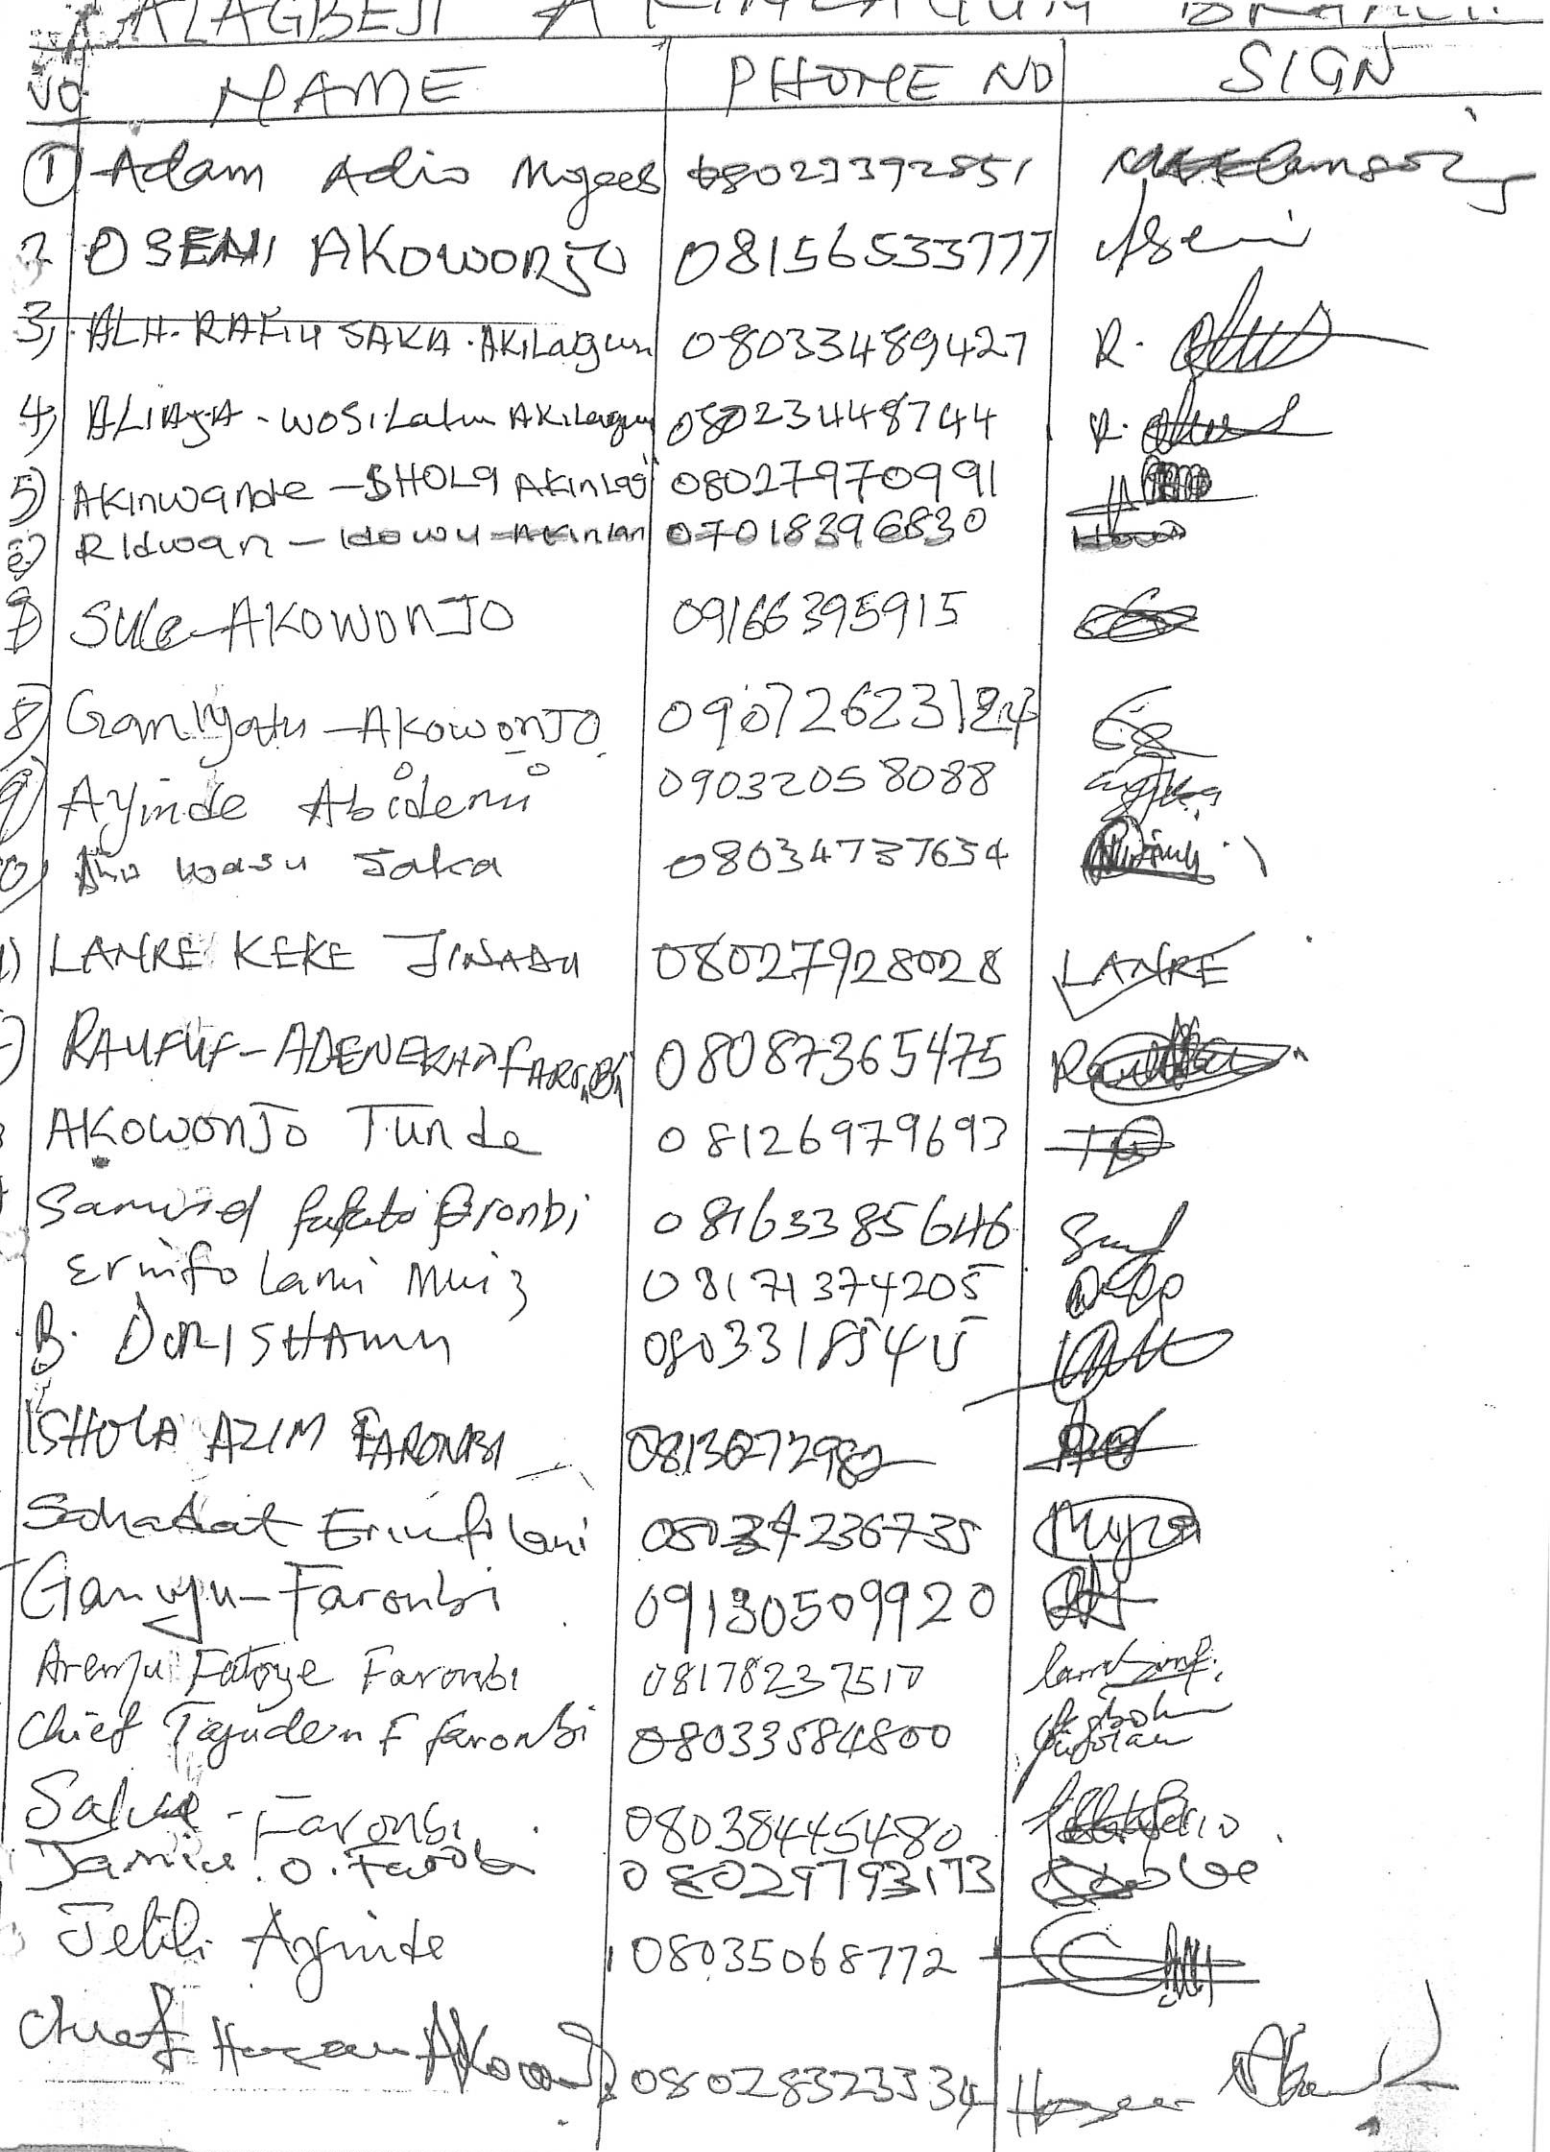 ALAGBEJI AKINLAGUN BRANCH
NO NAME PHONE NO SIGN
1 Adam Adio Mojeeb 08023392851
2 OSENI AKOWONJO 08156533777 Oseni
3) ALH. RAFIU SAKA. AKILAgun 08033489427 R.
4) ALHAJA - WOSILatu AKILagun 080234448744 R.
5) AKinwande - SHOLA AKinLag 08027970991
6) RIdwan - Idowu - AKinlan 07018396830
7) Sule AKOWONJO 09166395915
8) Ganiyatu - AKowonJO 0907262312
9) Ayinde Abidemi 09032058088
10) wasu Saka 08034737654
11) LANRE KEKE JINADU 08027928028 LANRE
RAUFUF - ADENEKAN FARONBI 08087365475
AKOWONJO Tunde 08126979693
Samuel Faronbi 08163385646
Erinfolami Muiz 08171374205
B. DURISHAMU
ISHOLA AZIM FARONBI 0813072982
Sahadat Erinfolami 08034236735
Ganiyu - Faronbi 09130509920
Aremu Fatoye Faronbi 08178237510
Chief Tajudeen F faronbi 08033584800
Salue - Faronbi 08038445480
08029793173
Jelili Ayinde 08035068772
Chief Hassan Akowonjo 08028323334 Hassan